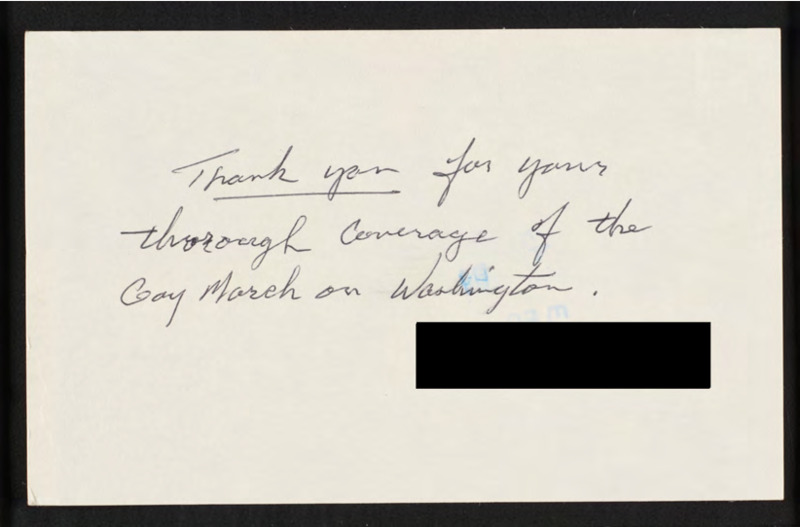 Thank you for your
thorough coverage of the
Gay March on Washington.